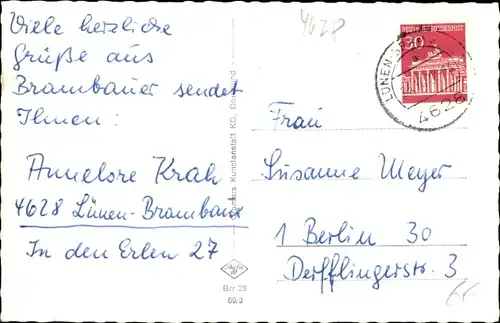 Viele herzliche
Grüße aus
Brambauer sendet
Ihnen:
Annelore Krah
4628 Lünen-Brambau
In den Erlen 27
Kunstanstalt KG, Dortmund
Agfa
Bar 23
69/3
4628
30
LÜNEN
4628
Frau
Susanne Meyer
1 Berlin 30
Derfflingerstr. 3